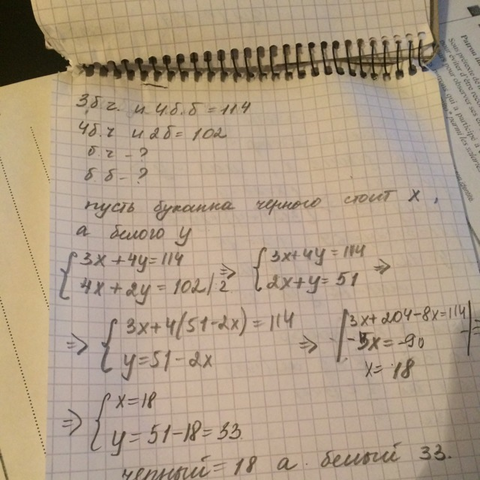 3б.ч. и 4б.б = 114
4б.ч и 2б = 102
б ч - ?
б б - ?
пусть буханка черного стоит x,
а белого y
{ 3x + 4y = 114
4x + 2y = 102 | 2
=> { 3x + 4y = 114
2x + y = 51 =>
=> { 3x + 4(51 - 2x) = 114
y = 51 - 2x
=> | 3x + 204 - 8x = 114
-5x = -90
x = 18 | =
=> { x = 18
y = 51 - 18 = 33
черный = 18 а белый 33.